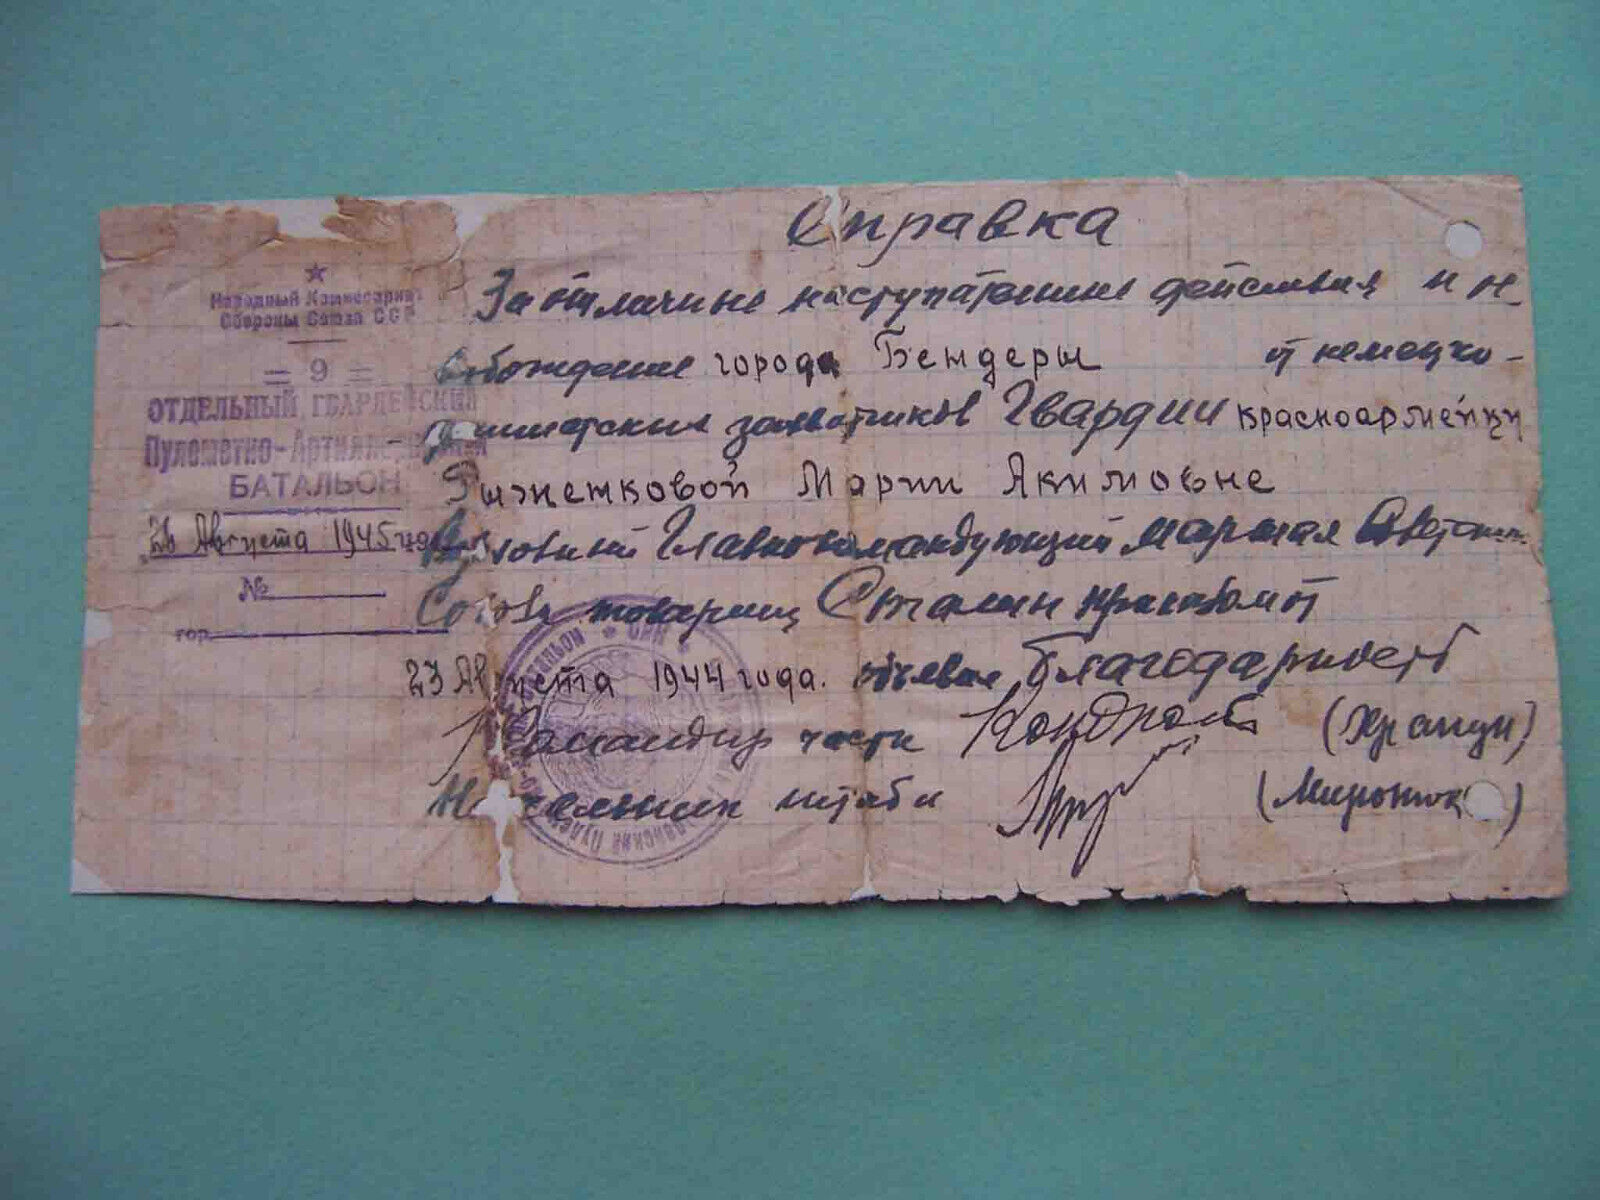 Справка
Народный Комиссариат
Обороны Союза ССР
= 9 =
ОТДЕЛЬНЫЙ ГВАРДЕЙСКИЙ
Пулеметно-Артиллерийский
БАТАЛЬОН
26 Августа 1945 года
№
гор.
За отличные наступательные действия и
города Бендеры от немецко-
захватчиков Гвардии красноармейцу
Марии Акимовне
Верховный Главнокомандующий Маршал
Союза товарищ Сталин приказом от
23 Августа 1944 года. объявил благодарность
Командир части (Храпун)
Начальник штаба (Миронюк)